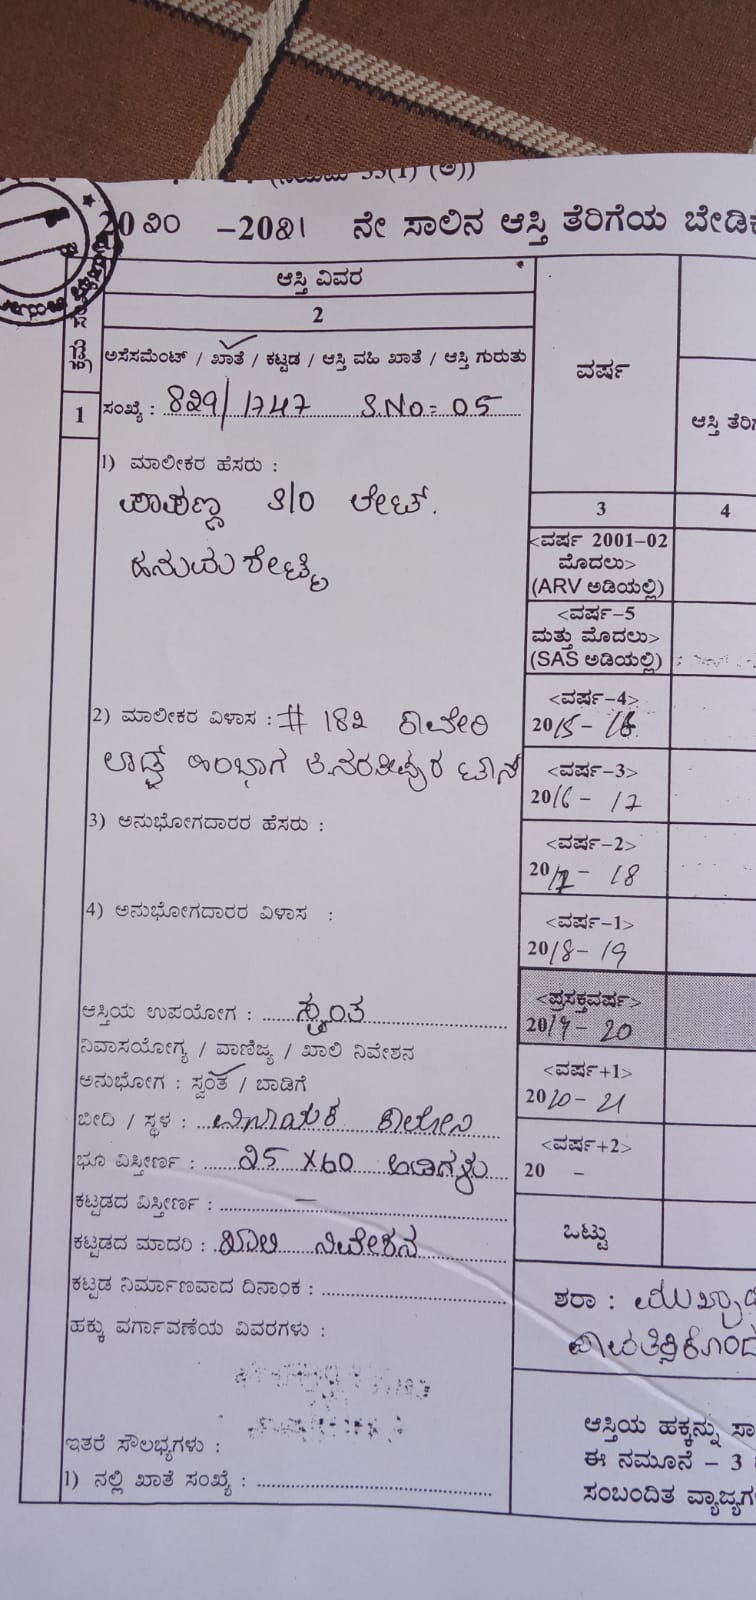 2020 -2021 ನೇ ಸಾಲಿನ ಆಸ್ತಿ ತೆರಿಗೆಯ
ಕ್ರಮ ಸಂಖ್ಯೆ
ಆಸ್ತಿ ವಿವರ
2
ಅಸೆಸಮೆಂಟ್ / ಖಾತೆ / ಕಟ್ಟಡ / ಆಸ್ತಿ ವಹಿ ಖಾತೆ / ಆಸ್ತಿ ಗುರುತು
1
ಸಂಖ್ಯೆ : 829/1747 S.No = 05
1) ಮಾಲೀಕರ ಹೆಸರು :
ಪಾಪಣ್ಣ S/O ಲೇಟ್.
ಹನುಮಶೇಟ್ಟಿ
2) ಮಾಲೀಕರ ವಿಳಾಸ : # 182 ಕಾವೇರಿ
ಲಾಡ್ಜ್ ಹಿಂಭಾಗ ತಿ.ನರಸೀಪುರ ಟೌನ್
3) ಅನುಭೋಗದಾರರ ಹೆಸರು :
4) ಅನುಭೋಗದಾರರ ವಿಳಾಸ :
ಆಸ್ತಿಯ ಉಪಯೋಗ : ಸ್ವಂತ
ನಿವಾಸಯೋಗ್ಯ / ವಾಣಿಜ್ಯ / ಖಾಲಿ ನಿವೇಶನ
ಅನುಭೋಗ : ಸ್ವಂತ / ಬಾಡಿಗೆ
ಬೀದಿ / ಸ್ಥಳ : ವಿನಾಯಕ ಕಾಲೋನಿ
ಭೂ ವಿಸ್ತೀರ್ಣ : 25 X 60 ಅಡಿಗಳು
ಕಟ್ಟಡದ ವಿಸ್ತೀರ್ಣ : –
ಕಟ್ಟಡದ ಮಾದರಿ : ಖಾಲಿ ನಿವೇಶನ
ಕಟ್ಟಡ ನಿರ್ಮಾಣವಾದ ದಿನಾಂಕ :
ಹಕ್ಕು ವರ್ಗಾವಣೆಯ ವಿವರಗಳು :
ಇತರೆ ಸೌಲಭ್ಯಗಳು :
1) ನಲ್ಲಿ ಖಾತೆ ಸಂಖ್ಯೆ :
ವರ್ಷ
3
<ವರ್ಷ 2001-02
ಮೊದಲು>
(ARV ಅಡಿಯಲ್ಲಿ)
<ವರ್ಷ-5
ಮತ್ತು ಮೊದಲು>
(SAS ಅಡಿಯಲ್ಲಿ)
<ವರ್ಷ-4>
2015 - 16
<ವರ್ಷ-3>
2016 - 17
<ವರ್ಷ-2>
2017 - 18
<ವರ್ಷ-1>
2018 - 19
<ಪ್ರಸಕ್ತವರ್ಷ>
2019 - 20
<ವರ್ಷ+1>
2020 - 21
<ವರ್ಷ+2>
20 -
ಒಟ್ಟು
ಆಸ್ತಿ
4
ಶರಾ :
ಆಸ್ತಿಯ ಹಕ್ಕನ್ನು
ಈ ನಮೂನೆ – 3
ಸಂಬಂದಿತ